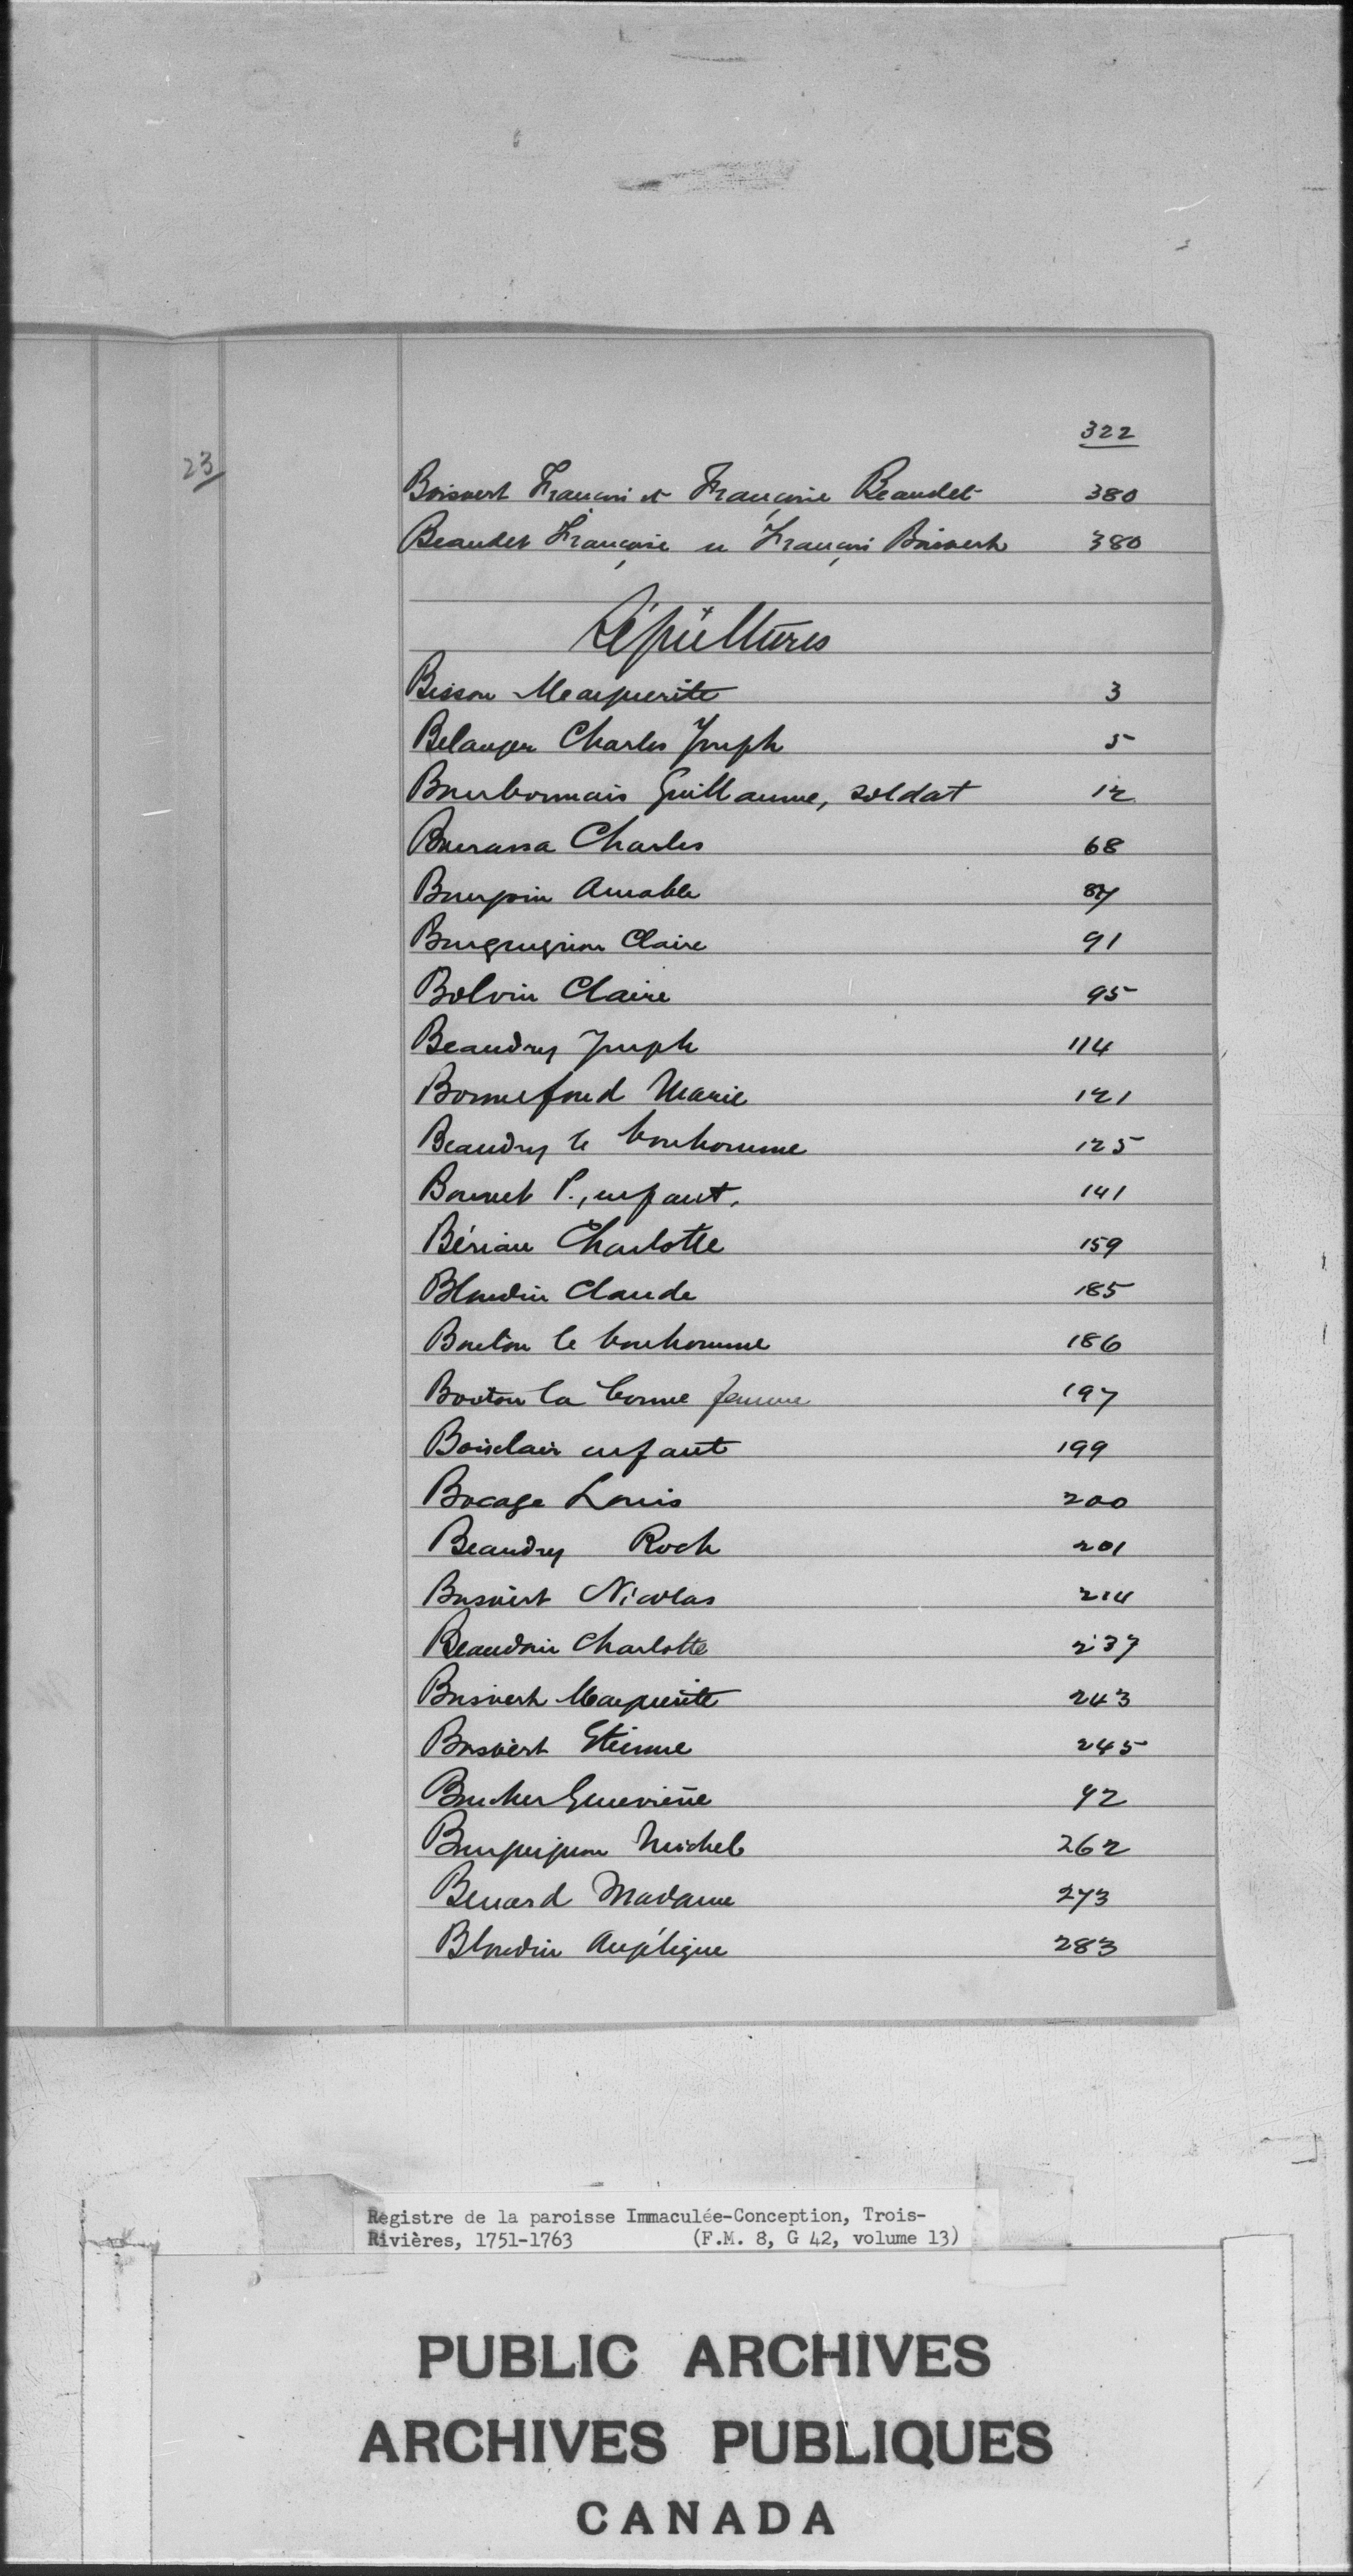 322
23
Boisvert François et Françoise Beaudet 380
Beaudet Françoise et François Boisvert 380
Sépultures
Bisson Marguerite 3
Belanger Charles Joseph 5
Bourbonnais Guillaume, soldat 12
Bourassa Charles 68
Bourgoin Amable 87
Bourguignon Claire 91
Bolvin Claire 95
Beaudry Joseph 114
Bonnefond Marie 121
Beaudry le bonhomme 125
Bonnet P., enfant. 141
Bériau Charlotte 159
Blondin Claude 185
Bouton le bonhomme 186
Bouton la bonne femme 197
Boisclair enfant 199
Bocage Louis 200
Beaudry Roch 201
Boisvert Nicolas 214
Beaudoin Charlotte 237
Boisvert Marguerite 243
Boisvert Etienne 245
Boucher Geneviève 92
Bourguignon Michel 262
Benard Madame 273
Blondin Angélique 283
Registre de la paroisse Immaculée-Conception, Trois-
Rivières, 1751-1763 (F.M. 8, G 42, volume 13)
PUBLIC ARCHIVES
ARCHIVES PUBLIQUES
CANADA